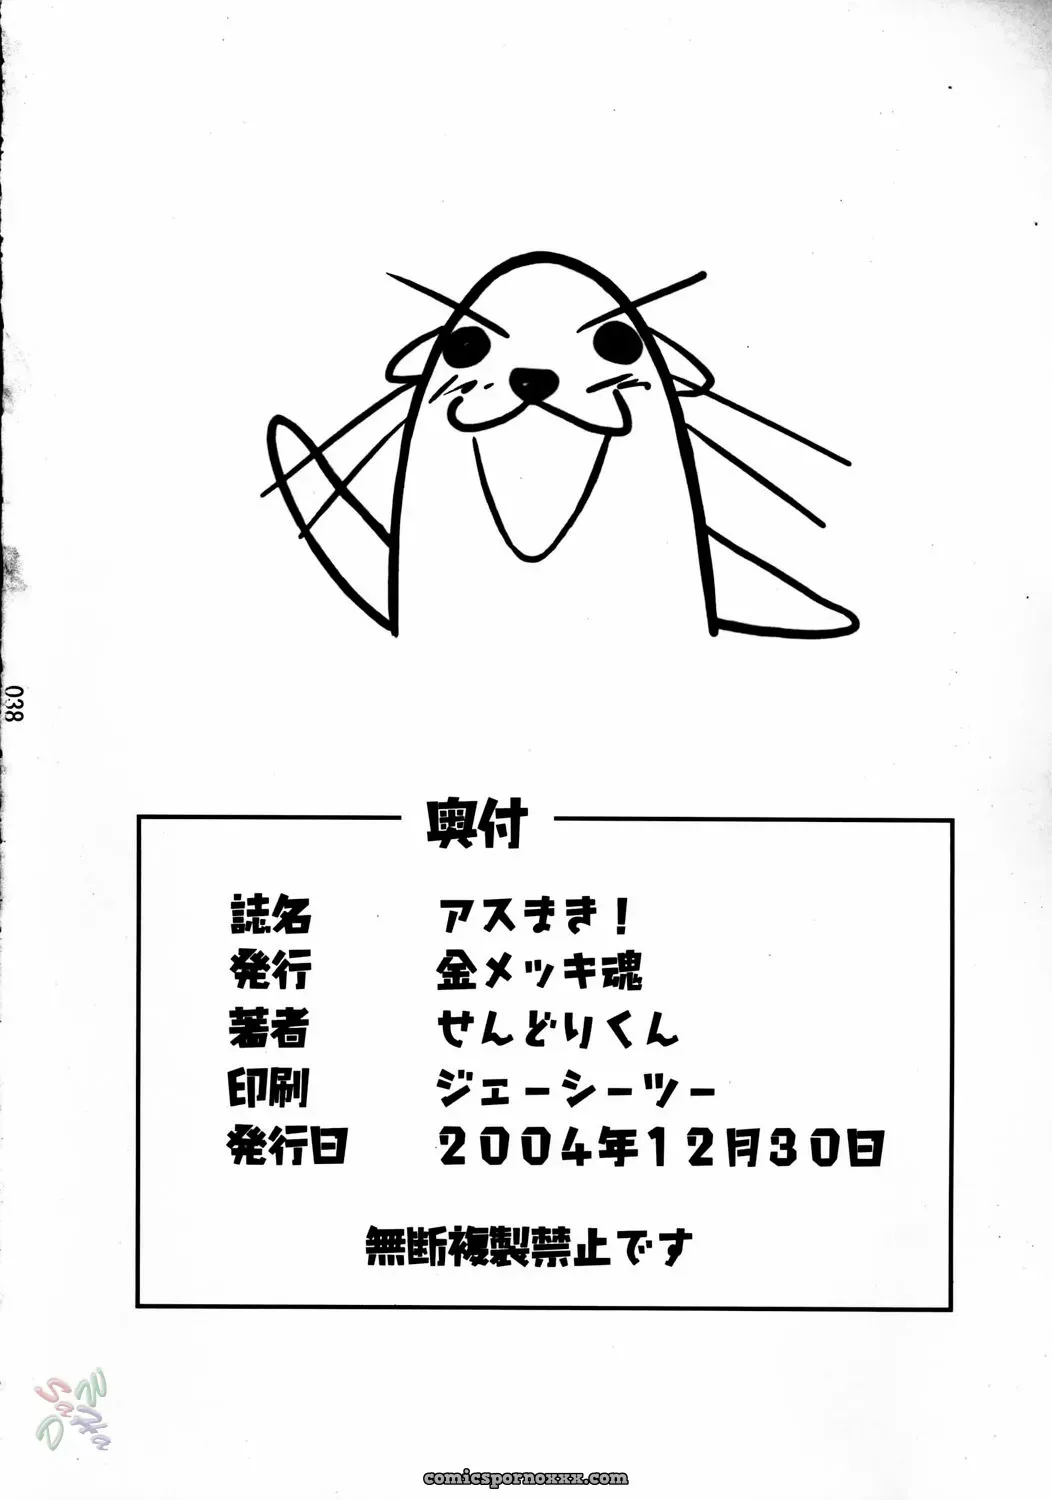 038
奥付
誌名 アスまき!
発行 金メッキ魂
著者 せんどりくん
印刷 ジェーシーツー
発行日 2004年12月30日
無断複製禁止です
comicspornoxxx.com